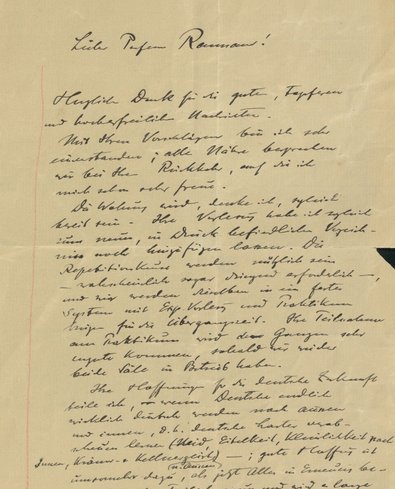 Lieber Professor Ramann!
Herzlichen Dank für die guten, tapferen
und hocherfreulichen Nachrichten.
Mit Ihren Vorschlägen bin ich sehr
einverstanden; alle Nähre besprechen
wir bei Ihrer Rückkehr, auf die ich
mich schon sehr freue.
Die Wohnung wird, denke ich, zugleich
bereit sein. Ihre Vorlesung habe ich zugleich
ins neue, in Druck befindliche Verzeich-
nis noch hinzufügen lassen. Die
Repetitionkurse werden möglich sein
– wahrscheinlich sogar dringend erforderlich –,
und wir werden dieselben in ein festes
System mit Vorlesung und Praktikum
bringen für die Übergangszeit. Ihre Teilnahme
am Praktikum wird dem Ganzen sehr
zugute kommen, sobald wir wieder
beide Säle in Betrieb haben.
Ihre Hoffnung für die deutsche Zukunft
teile ich, wenn Deutsche endlich
wirklich deutsch werden nach aussen
und innen, d.h. deutsche Laster verab-
scheuen lernen (Neid, Eitelkeit, Kleinlichkeit nach
Innen, nach Aussen) –; gute Hoffnung ist
umsomehr dazu, als jetzt Alles in